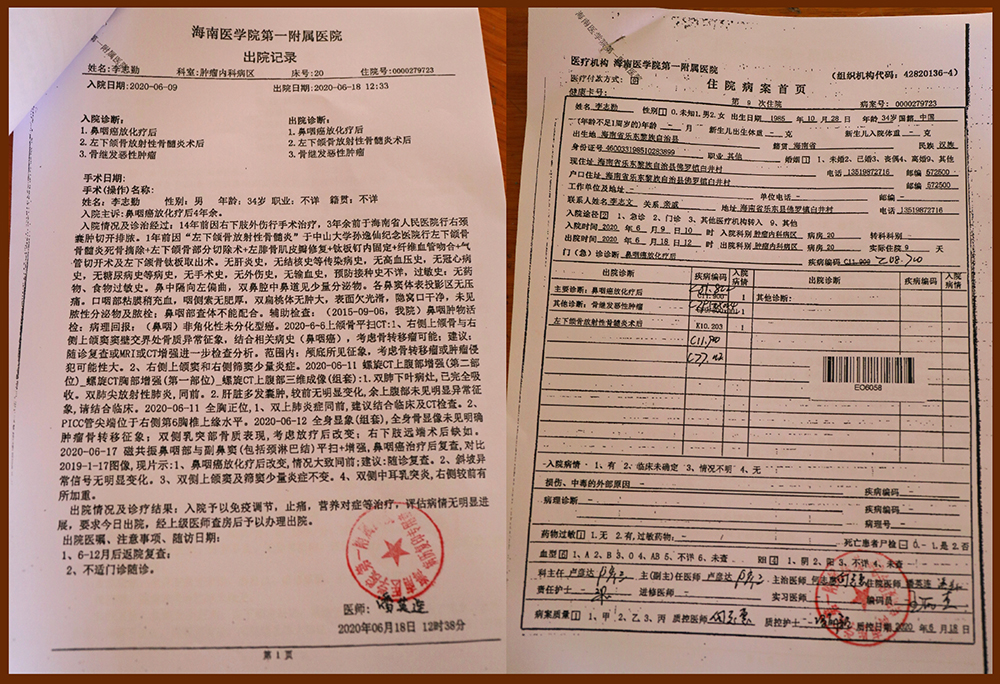 海南医学院第一附属医院
出院记录
姓名:李志勤 科室:肿瘤内科病区 床号:20 住院号:0000279723
入院日期:2020-06-09 出院日期:2020-06-18 12:33
入院诊断: 出院诊断:
1.鼻咽癌放化疗后 1.鼻咽癌放化疗后
2.左下颌骨放射性骨髓炎术后 2.左下颌骨放射性骨髓炎术后
3.骨继发恶性肿瘤 3.骨继发恶性肿瘤
手术日期:
手术(操作)名称:
姓名:李志勤 性别:男 年龄:34岁 职业:不详 籍贯:不详
入院主诉:鼻咽癌放化疗后4年余。
入院情况及诊治经过:14年前因右下肢外伤行手术治疗,3年余前于海南省人民医院行右颈
囊肿切开排脓。1年前因“左下颌骨放射性骨髓炎”于中山大学孙逸仙纪念医院行左下颌骨
骨髓炎死骨摘除+左下颌骨部分切除术+左腓骨肌皮瓣修复+钛板钉内固定+纤维血管吻合+气
管切开术及左下颌骨钛板取出术。无肝炎史,无结核史等传染病史,无高血压史,无冠心病
史,无糖尿病史等病史,无手术史,无外伤史,无输血史,预防接种史不详,过敏史:无药
物、食物过敏史。鼻中隔向左偏曲,双鼻腔中鼻道见少量分泌物。各鼻窦体表投影区无压
痛。口咽部粘膜稍充血,咽侧索无肥厚,双扁桃体无肿大,表面欠光滑,隐窝口干净,未见
脓性分泌物及脓栓;鼻咽部查体不能配合。辅助检查:(2015-09-06,我院)鼻咽肿物活
检:病理回报:(鼻咽)非角化性未分化型癌。2020-6-6上颌骨平扫CT:1、右侧上颌骨与右
侧上颌窦窦壁交界处骨质异常征象,结合相关病史(鼻咽癌),考虑骨转移瘤可能;建议:
随诊复查或MRI或CT增强进一步检查分析。范围内:颅底所见征象,考虑骨转移瘤或肿瘤侵
犯可能性大。2、右侧上颌窦和右侧筛窦少量炎症。2020-06-11 螺旋CT上腹部增强(第二部
位)_螺旋CT胸部增强(第一部位)_螺旋CT上腹部三维成像(组套):1.双肺下叶病灶,已完全吸
收。双肺尖放射性肺炎,同前。2.肝脏多发囊肿,较前无明显变化,余上腹部未见明显异常征
象,请结合临床。2020-06-11 全胸正位,1、双上肺炎症同前,建议结合临床及CT检查。2、
PICC管尖端位于右侧第6胸椎上缘水平。2020-06-12 全身显象(组套),全身骨显像未见明确
肿瘤骨转移征象;双侧乳突部骨质表现,考虑放疗后改变;右下肢远端术后缺如。
2020-06-17 磁共振鼻咽部与副鼻窦(包括颈淋巴结)平扫+增强,鼻咽癌治疗后复查,对比
2019-1-17图像,现片示:1、鼻咽癌放化疗后改变,情况大致同前;建议:随诊复查。2、斜坡异
常信号无明显变化。3、双侧上颌窦及筛窦少量炎症不变。4、双侧中耳乳突炎,右侧较前有
所加重。
出院情况及诊疗结果:入院予以免疫调节,止痛,营养对症等治疗,评估病情无明显进
展,要求今日出院,经上级医师查房后予以办理出院。
出院医嘱、注意事项、随访日期:
1、6-12月后返院复查;
2、不适门诊随诊。
医师:
2020年06月18日 12时38分
第1页
医疗机构 海南医学院第一附属医院 (组织机构代码:42820136-4)
医疗付款方式: 住院病案首页
健康卡号: 第 9 次住院 病案号: 0000279723
姓名 李志勤 性别 1 0.未知1.男2.女 出生日期 1985 年 10 月 28 日 年龄 34岁 国籍 中国
(年龄不足1周岁的)年龄 - 月 新生儿出生体重 - 克 新生儿入院体重 - 克
出生地 海南省乐东黎族自治县 籍贯 海南省 民族 汉族
身份证号 460033198510283899 职业 其他 婚姻 1 1、未婚2、已婚3、丧偶4、离婚9、其他
现住址 海南省乐东黎族自治县佛罗镇白井村 电话 13519872716 邮编 572500
户口住址 海南省乐东黎族自治县佛罗镇白井村 邮编 572500
工作单位及地址 - 单位电话 - 邮编 -
联系人姓名 李志文 关系 亲戚 地址 海南省乐东县佛罗镇白井村 电话 13519872716
入院途径 2 1、急诊 2、门诊 3、其他医疗机构转入 9、其他
入院时间 2020 年 6 月 9 日 10 时 入院科别 肿瘤内科病区 病房 20 转科科别
出院时间 2020 年 6 月 18 日 12 时 出院科别 肿瘤内科病区 病房 20 实际住院 9 天
门(急)诊诊断 鼻咽癌放化疗后 疾病编码 C11.900 Z08.700
出院诊断 疾病编码 入院病情 出院诊断 疾病编码 入院病情
主要诊断:鼻咽癌放化疗后 C11.900 1 其他诊断:
其他诊断:骨继发恶性肿瘤 1
左下颌骨放射性骨髓炎术后 K10.203 1
C11.900
EO6058
入院病情: 1、有 2、临床未确定 3、情况不明 4、无
损伤、中毒的外部原因 - 疾病编码 -
病理诊断 - 疾病编码 -
病理号 -
药物过敏 1 1.无 2.有,过敏药物: - 死亡患者尸检 - 1.是 2.否
血型 1、A 2、B 3、O 4、AB 5、不详 6、未查 RH 1、阴 2、阳 3、不详 4、未查
科主任 卢彦达 主(副)主任医师 卢彦达 主治医师 住院医师
责任护士 进修医师 - 实习医师 编码员
病案质量 1 1、甲 2、乙 3、丙 质控医师 质控护士 质控日期 2020 年 6 月 18 日